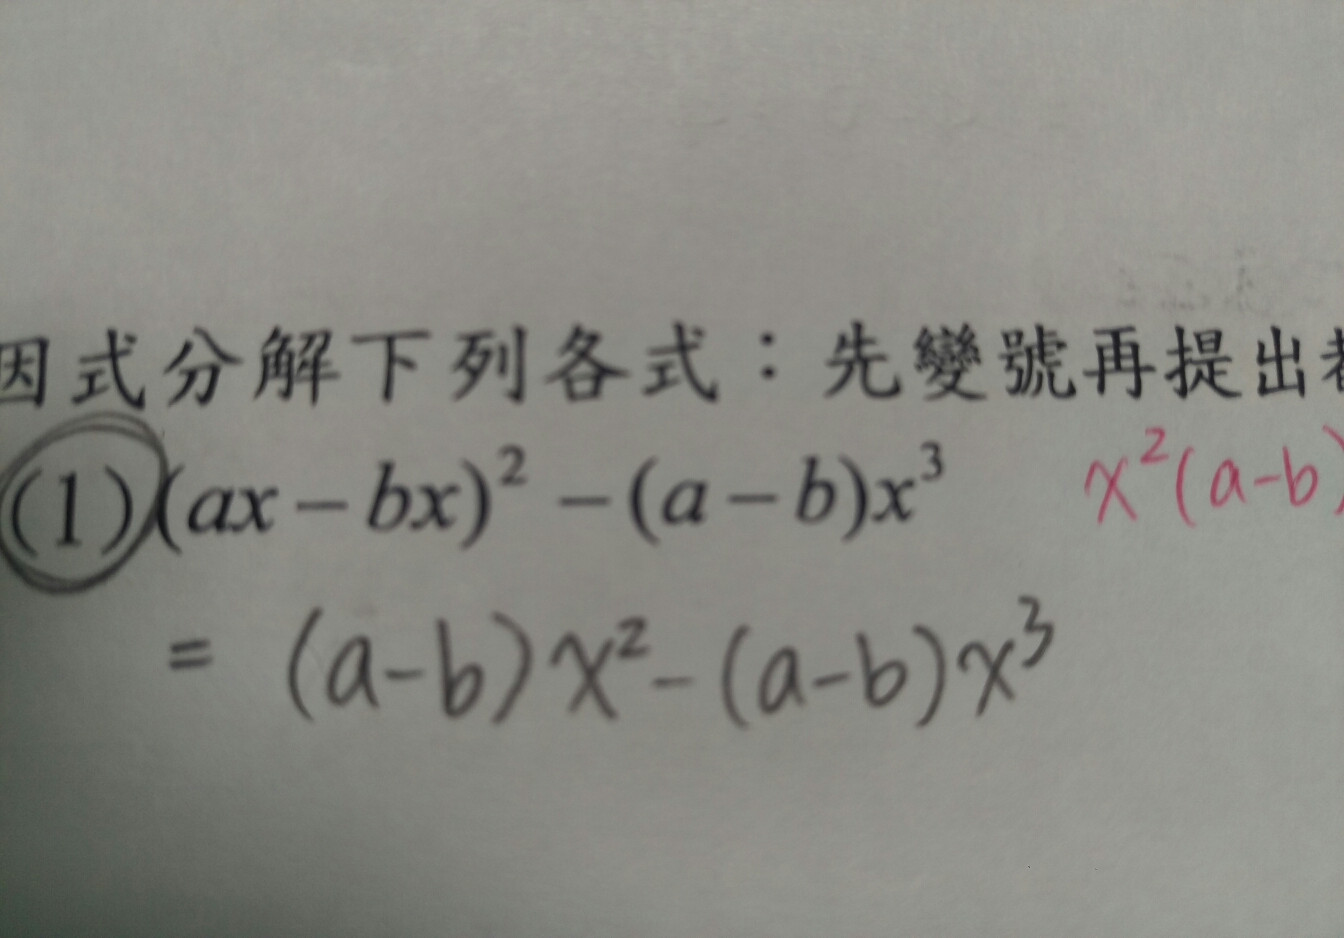 因式分解下列各式：先變號再提出
(1) (ax − bx)² − (a − b)x³ x²(a-b)
= (a-b)x² - (a-b)x³